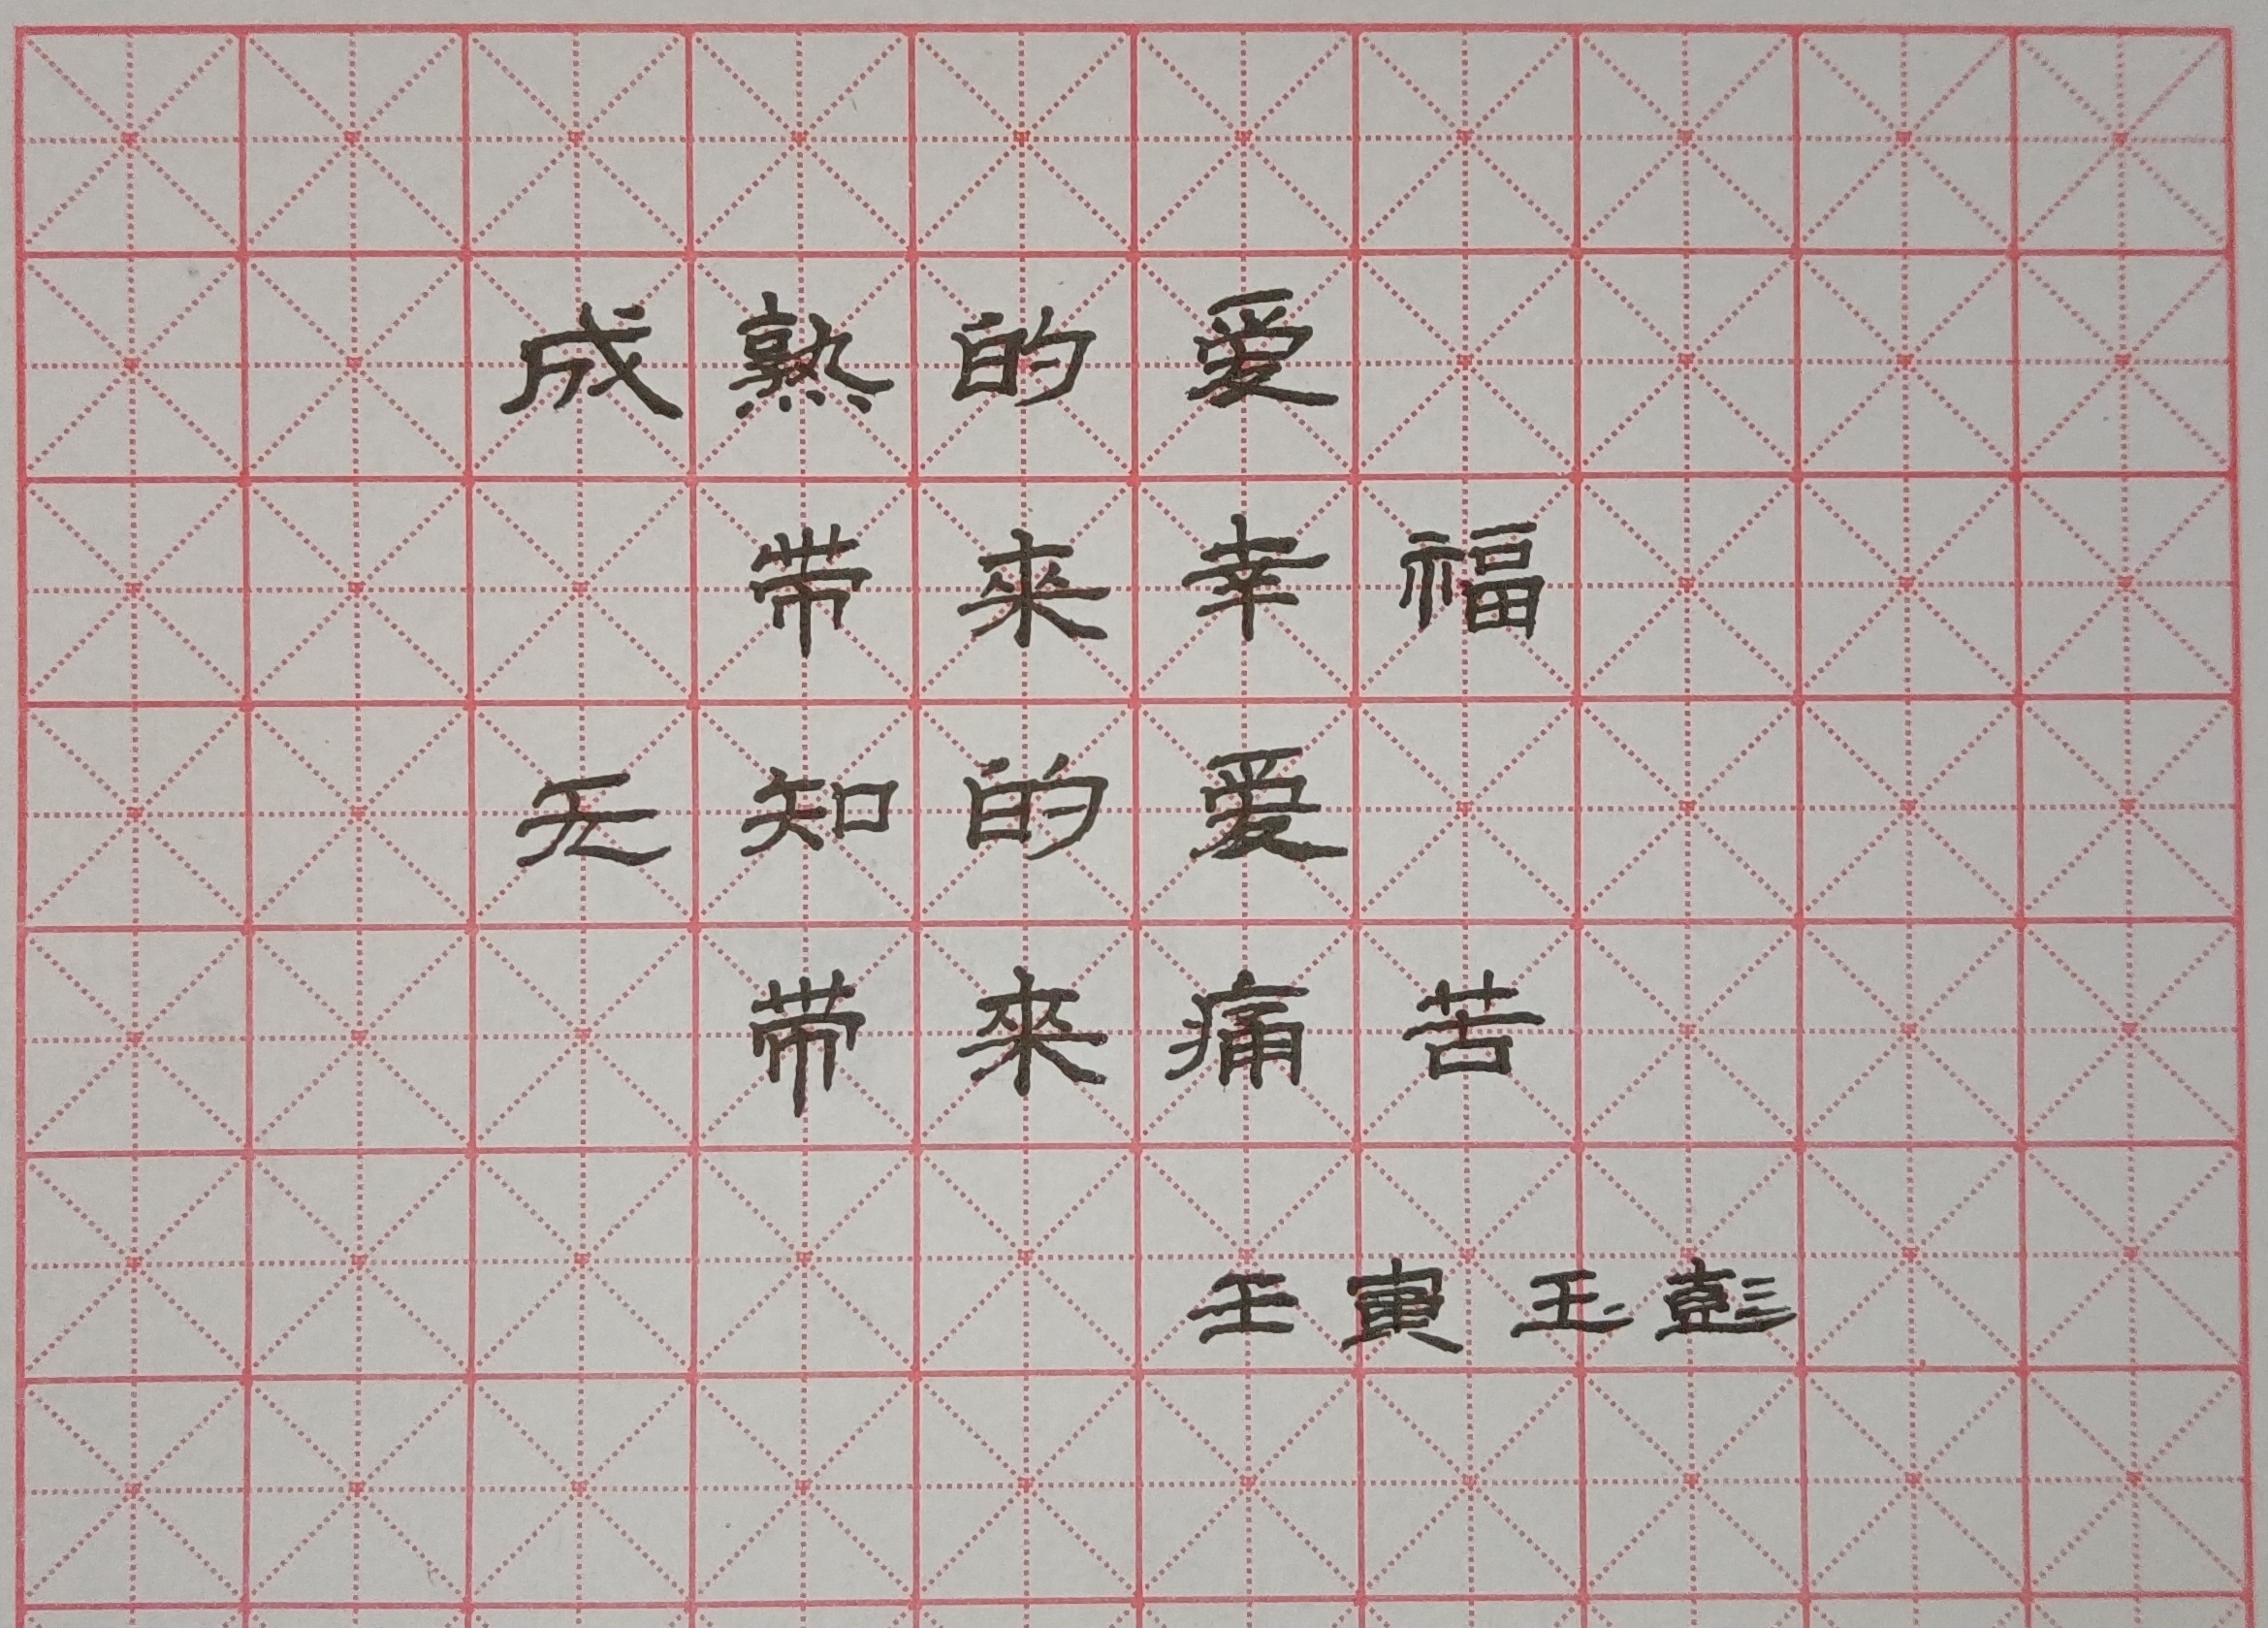 成熟的爱
带來幸福
无知的爱
带來痛苦
壬寅玉彭